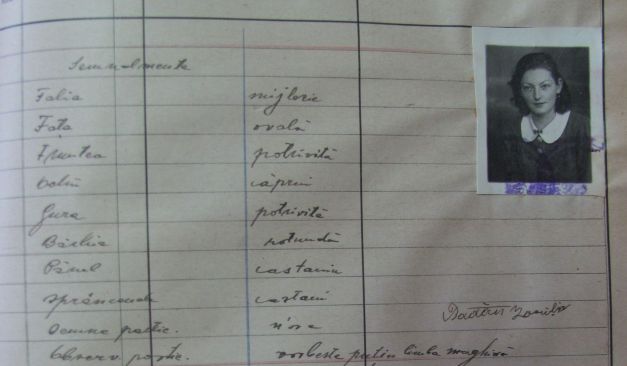 Semnalmente
Talia mijlocie
Fața ovală
Fruntea potrivită
Ochii căprui
Gura potrivită
Bărbia rotundă
Părul castaniu
Sprâncenele castanii
Semne partic. n'are
Observ. partic. vorbește puțin limba maghiară